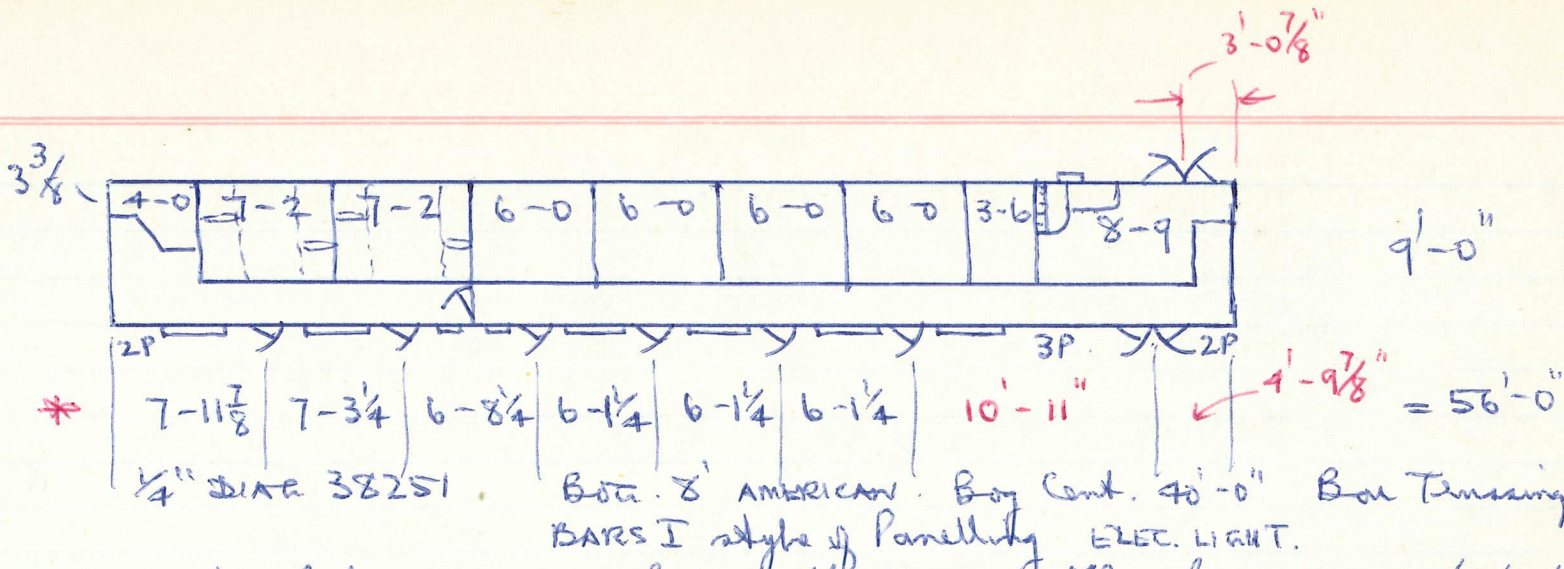 3'-0 7/8"
3 3/8
4-0 7-2 7-2 6-0 6-0 6-0 6-0 3-6 8-9
9'-0"
2P 3P. 2P
* 7-11 7/8 7-3 1/4 6-8 1/4 6-1 1/4 6-1 1/4 6-1 1/4 10'-11" 4'-9 7/8" = 56'-0"
1/4" DIAG 38251 8' AMERICAN. Bog Cent. 40'-0"
BARS I style of Panelling ELEC. LIGHT.